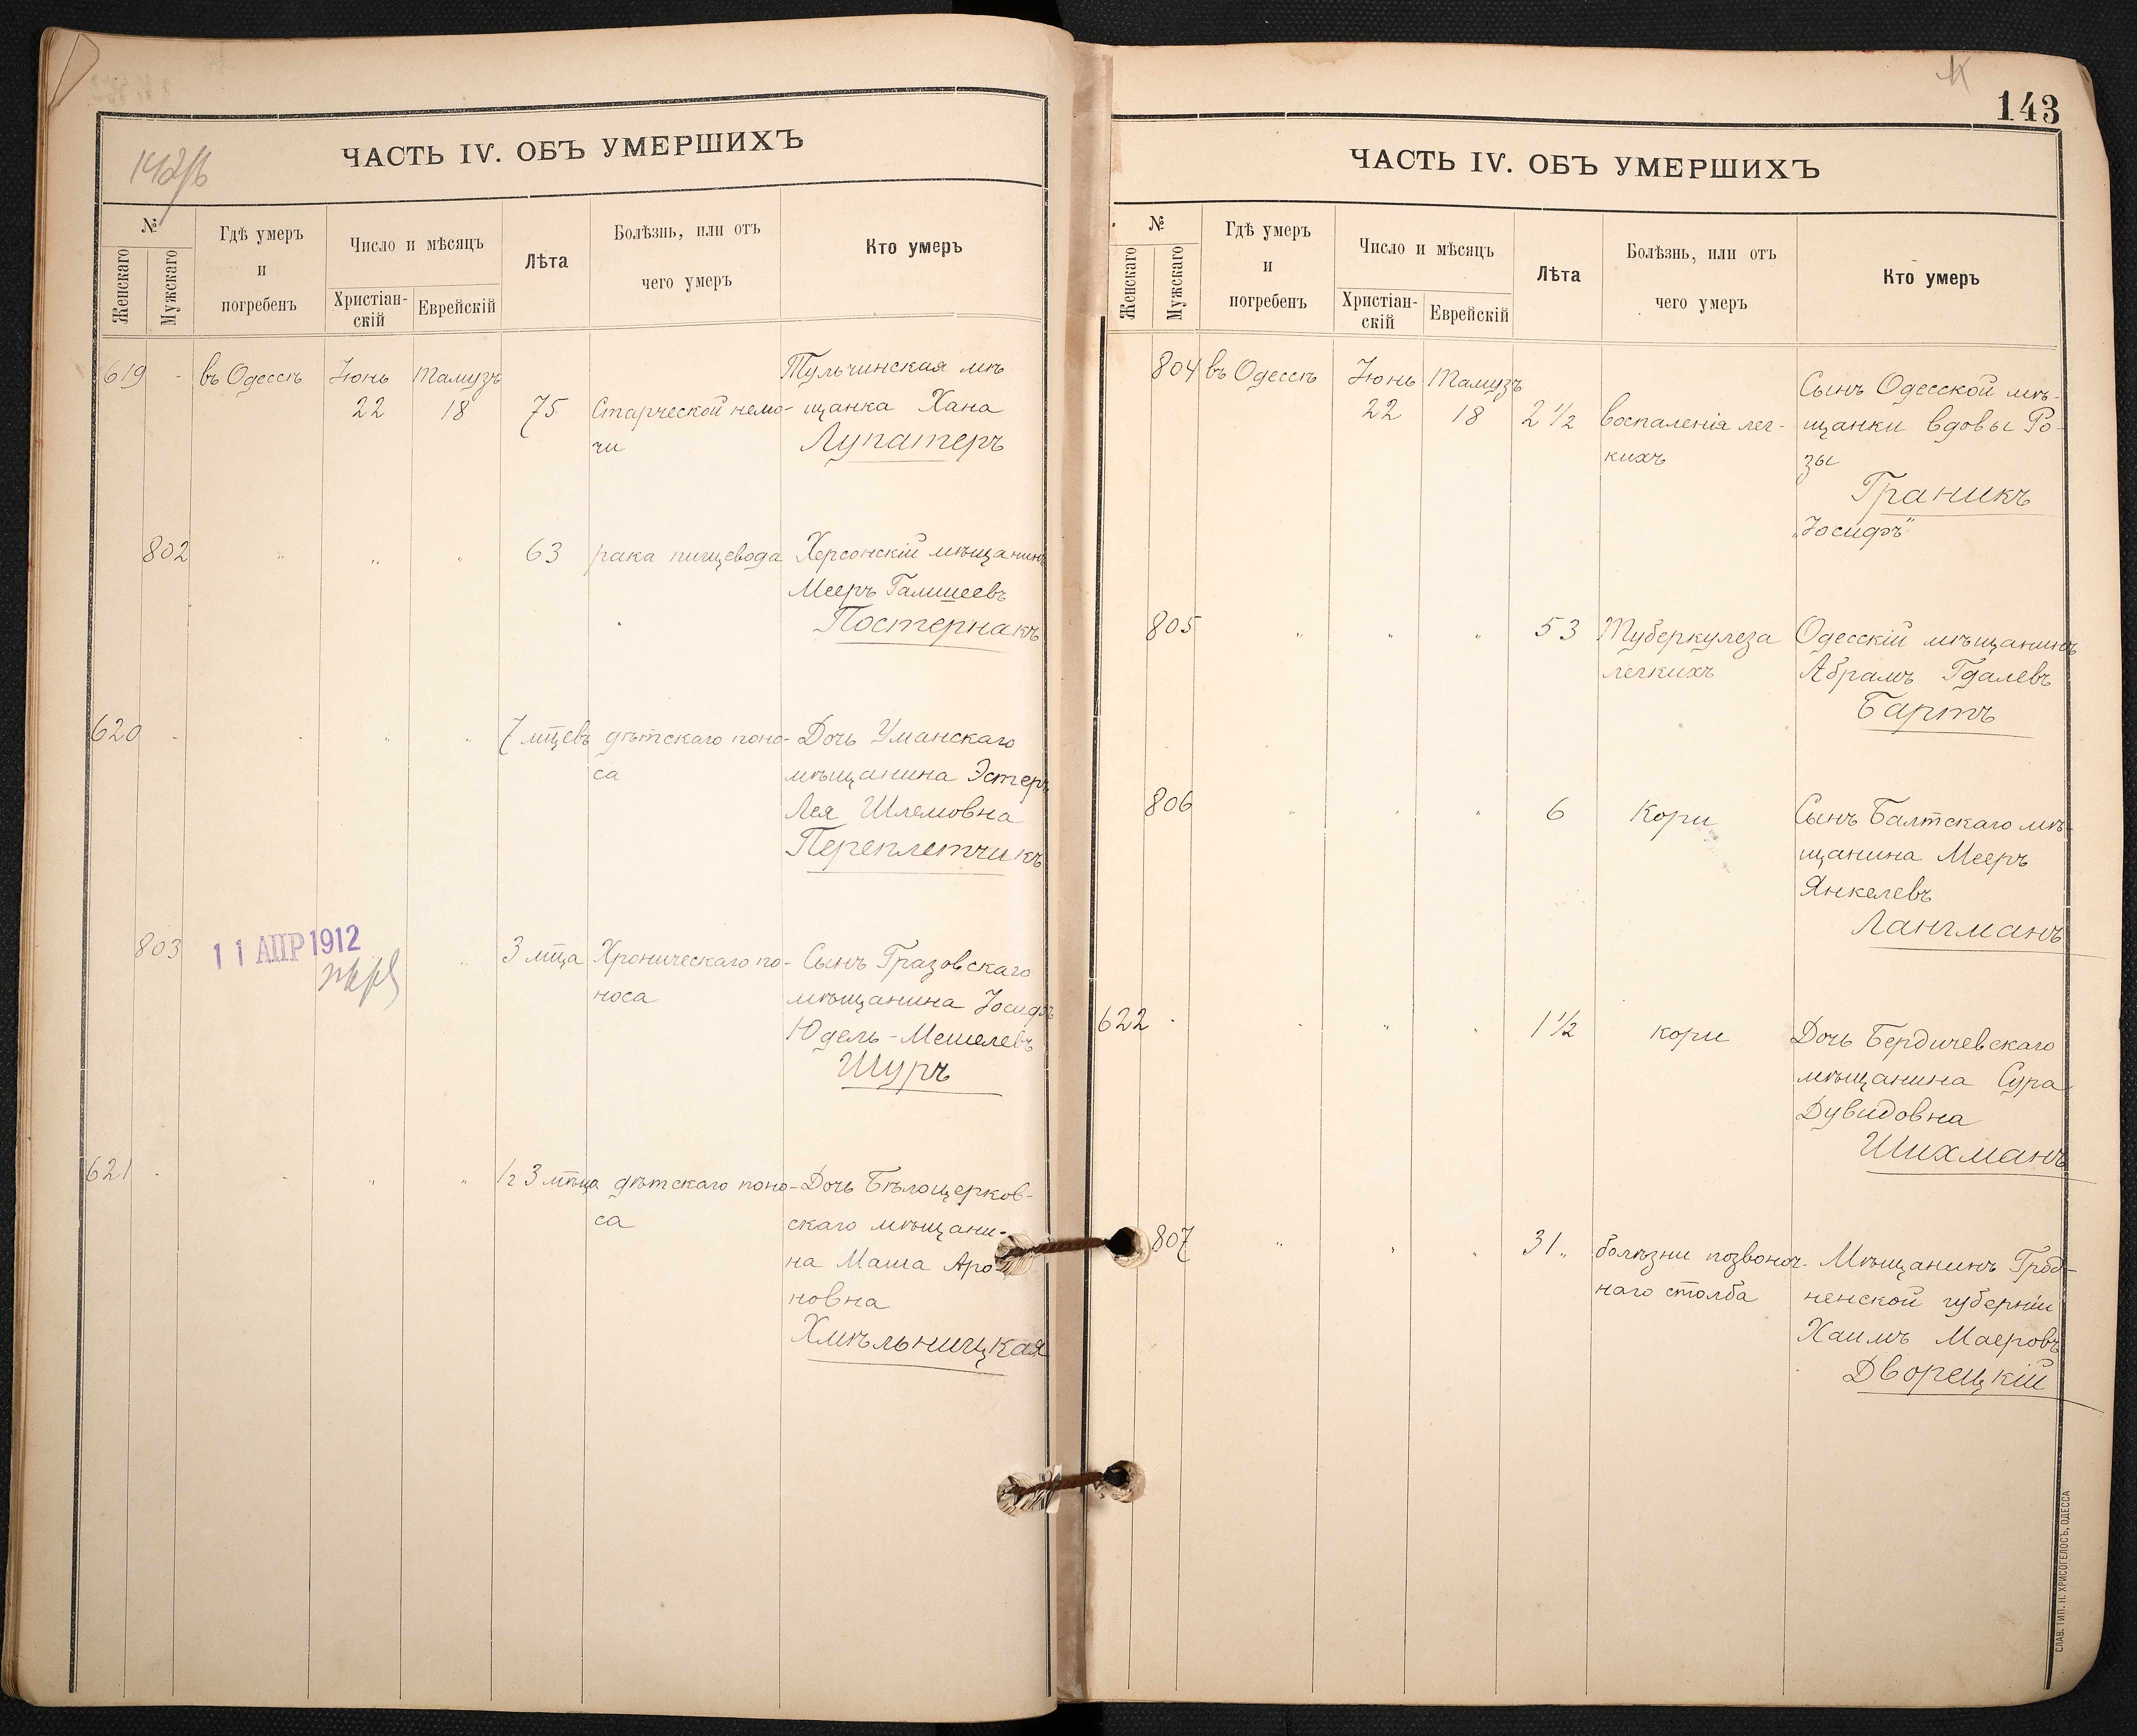 142/б
ЧАСТЬ IV. ОБЪ УМЕРШИХЪ
№
Женскаго
Мужскаго
Гдѣ умеръ
и
погребенъ
Число и мѣсяцъ
Христіан-
скій
Еврейскій
Лѣта
Болѣзнь, или отъ
чего умеръ
Кто умеръ
619 - въ Одессѣ Іюнь Тамузъ Тульчинская мѣ
22 18 75 Старческой немо- щанка Хана
чи Лупатеръ
802 " " " 63 рака пищевода Херсонскій мѣщанинъ
Мееръ Галишеевъ
Постернакъ
620 - " " " 7 мцевъ дѣтскаго поно- Дочь Уманскаго
са мѣщанина Эстеръ
Лея Шлемовна
Переплетчикъ
803 11 АПР 1912 " 3 мца Хроническаго по- Сынъ Гразовскаго
носа мѣщанина Іосифъ
Юдель-Мешелевъ
Шуръ
621 - " " " ½ 3 мѣца дѣтскаго поно- Дочь Бѣлоцерков-
са скаго мѣщани-
на Маша Аро-
новна
Хмѣльницкая
143
ЧАСТЬ IV. ОБЪ УМЕРШИХЪ
№
Женскаго
Мужскаго
Гдѣ умеръ
и
погребенъ
Число и мѣсяцъ
Христіан-
скій
Еврейскій
Лѣта
Болѣзнь, или отъ
чего умеръ
Кто умеръ
804 въ Одессѣ Іюнь Тамузъ Сынъ Одесской мѣ-
22 18 2 1/2 воспаленія лег- щанки вдовы Ро-
кихъ зы
Граникъ
„Іосифъ“
805 " " " 53 Туберкулеза Одесскій мѣщанинъ
легкихъ Абрамъ Гдалевъ
Бартъ
806 " " " 6 Кори Сынъ Балтскаго мѣ-
щанина Мееръ
Янкелевъ
Лангманъ
622 - " " " 1 1/2 кори Дочь Бердичевскаго
мѣщанина Сура
Дувидовна
Шихманъ
807 " " " 31 " болѣзни позвоноч- Мѣщанинъ Грод-
наго столба ненской губерніи
Хаимъ Маеровъ
Дворецкій
СЛАВ. ТИП. Н. ХРИСОГЕЛОСЪ, ОДЕССА